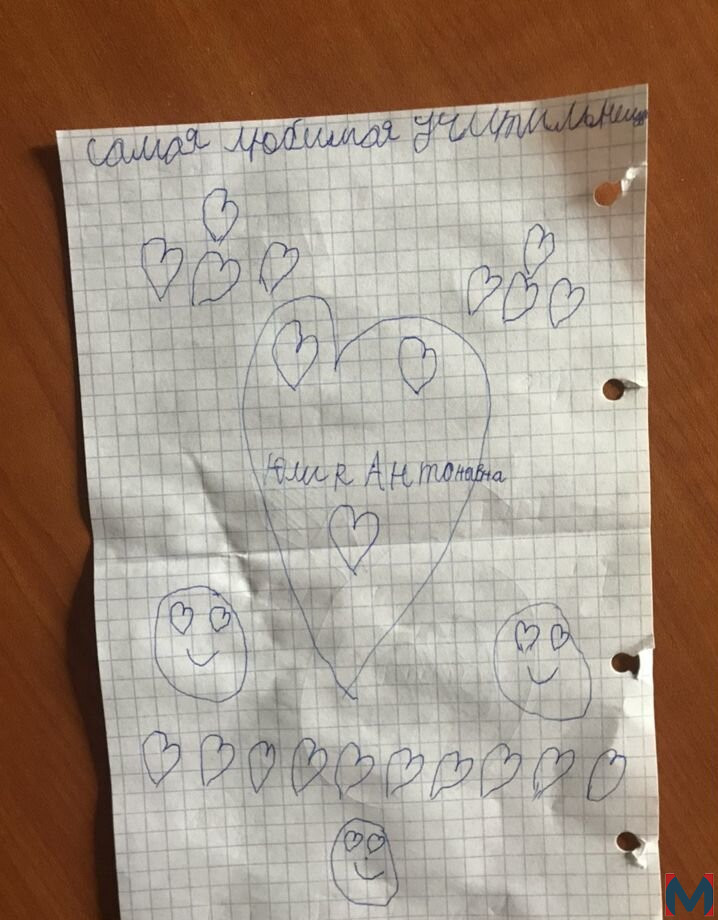 самая любимая учитильнеца
Юлия Антонавна
M